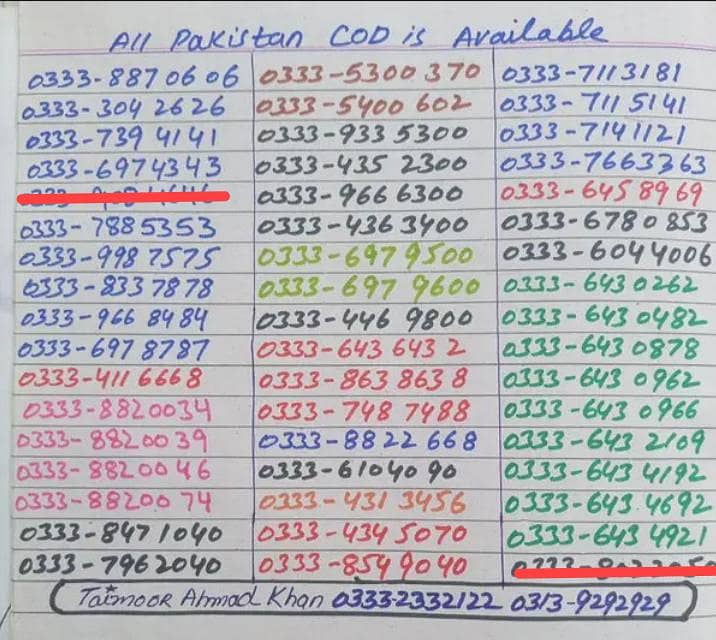 All Pakistan COD is Available
0333-8870606 0333-5300370 0333-7113181
0333-3042626 0333-5400602 0333-7115141
0333-7394141 0333-9335300 0333-7141121
0333-6974343 0333-4352300 0333-7663363
0333-9666300 0333-6458969
0333-7885353 0333-4363400 0333-6780853
0333-9987575 0333-6979500 0333-6044006
0333-8337878 0333-6979600 0333-6430262
0333-9668484 0333-4469800 0333-6430482
0333-6978787 0333-6436432 0333-6430878
0333-4116668 0333-8638638 0333-6430962
0333-8820034 0333-7487488 0333-6430966
0333-8820039 0333-8822668 0333-6432109
0333-8820046 0333-6104090 0333-6434192
0333-8820074 0333-4313456 0333-6434692
0333-8471040 0333-4345070 0333-6434921
0333-7962040 0333-8549040
Taimoor Ahmad Khan 0333-2332122 0313-9292929